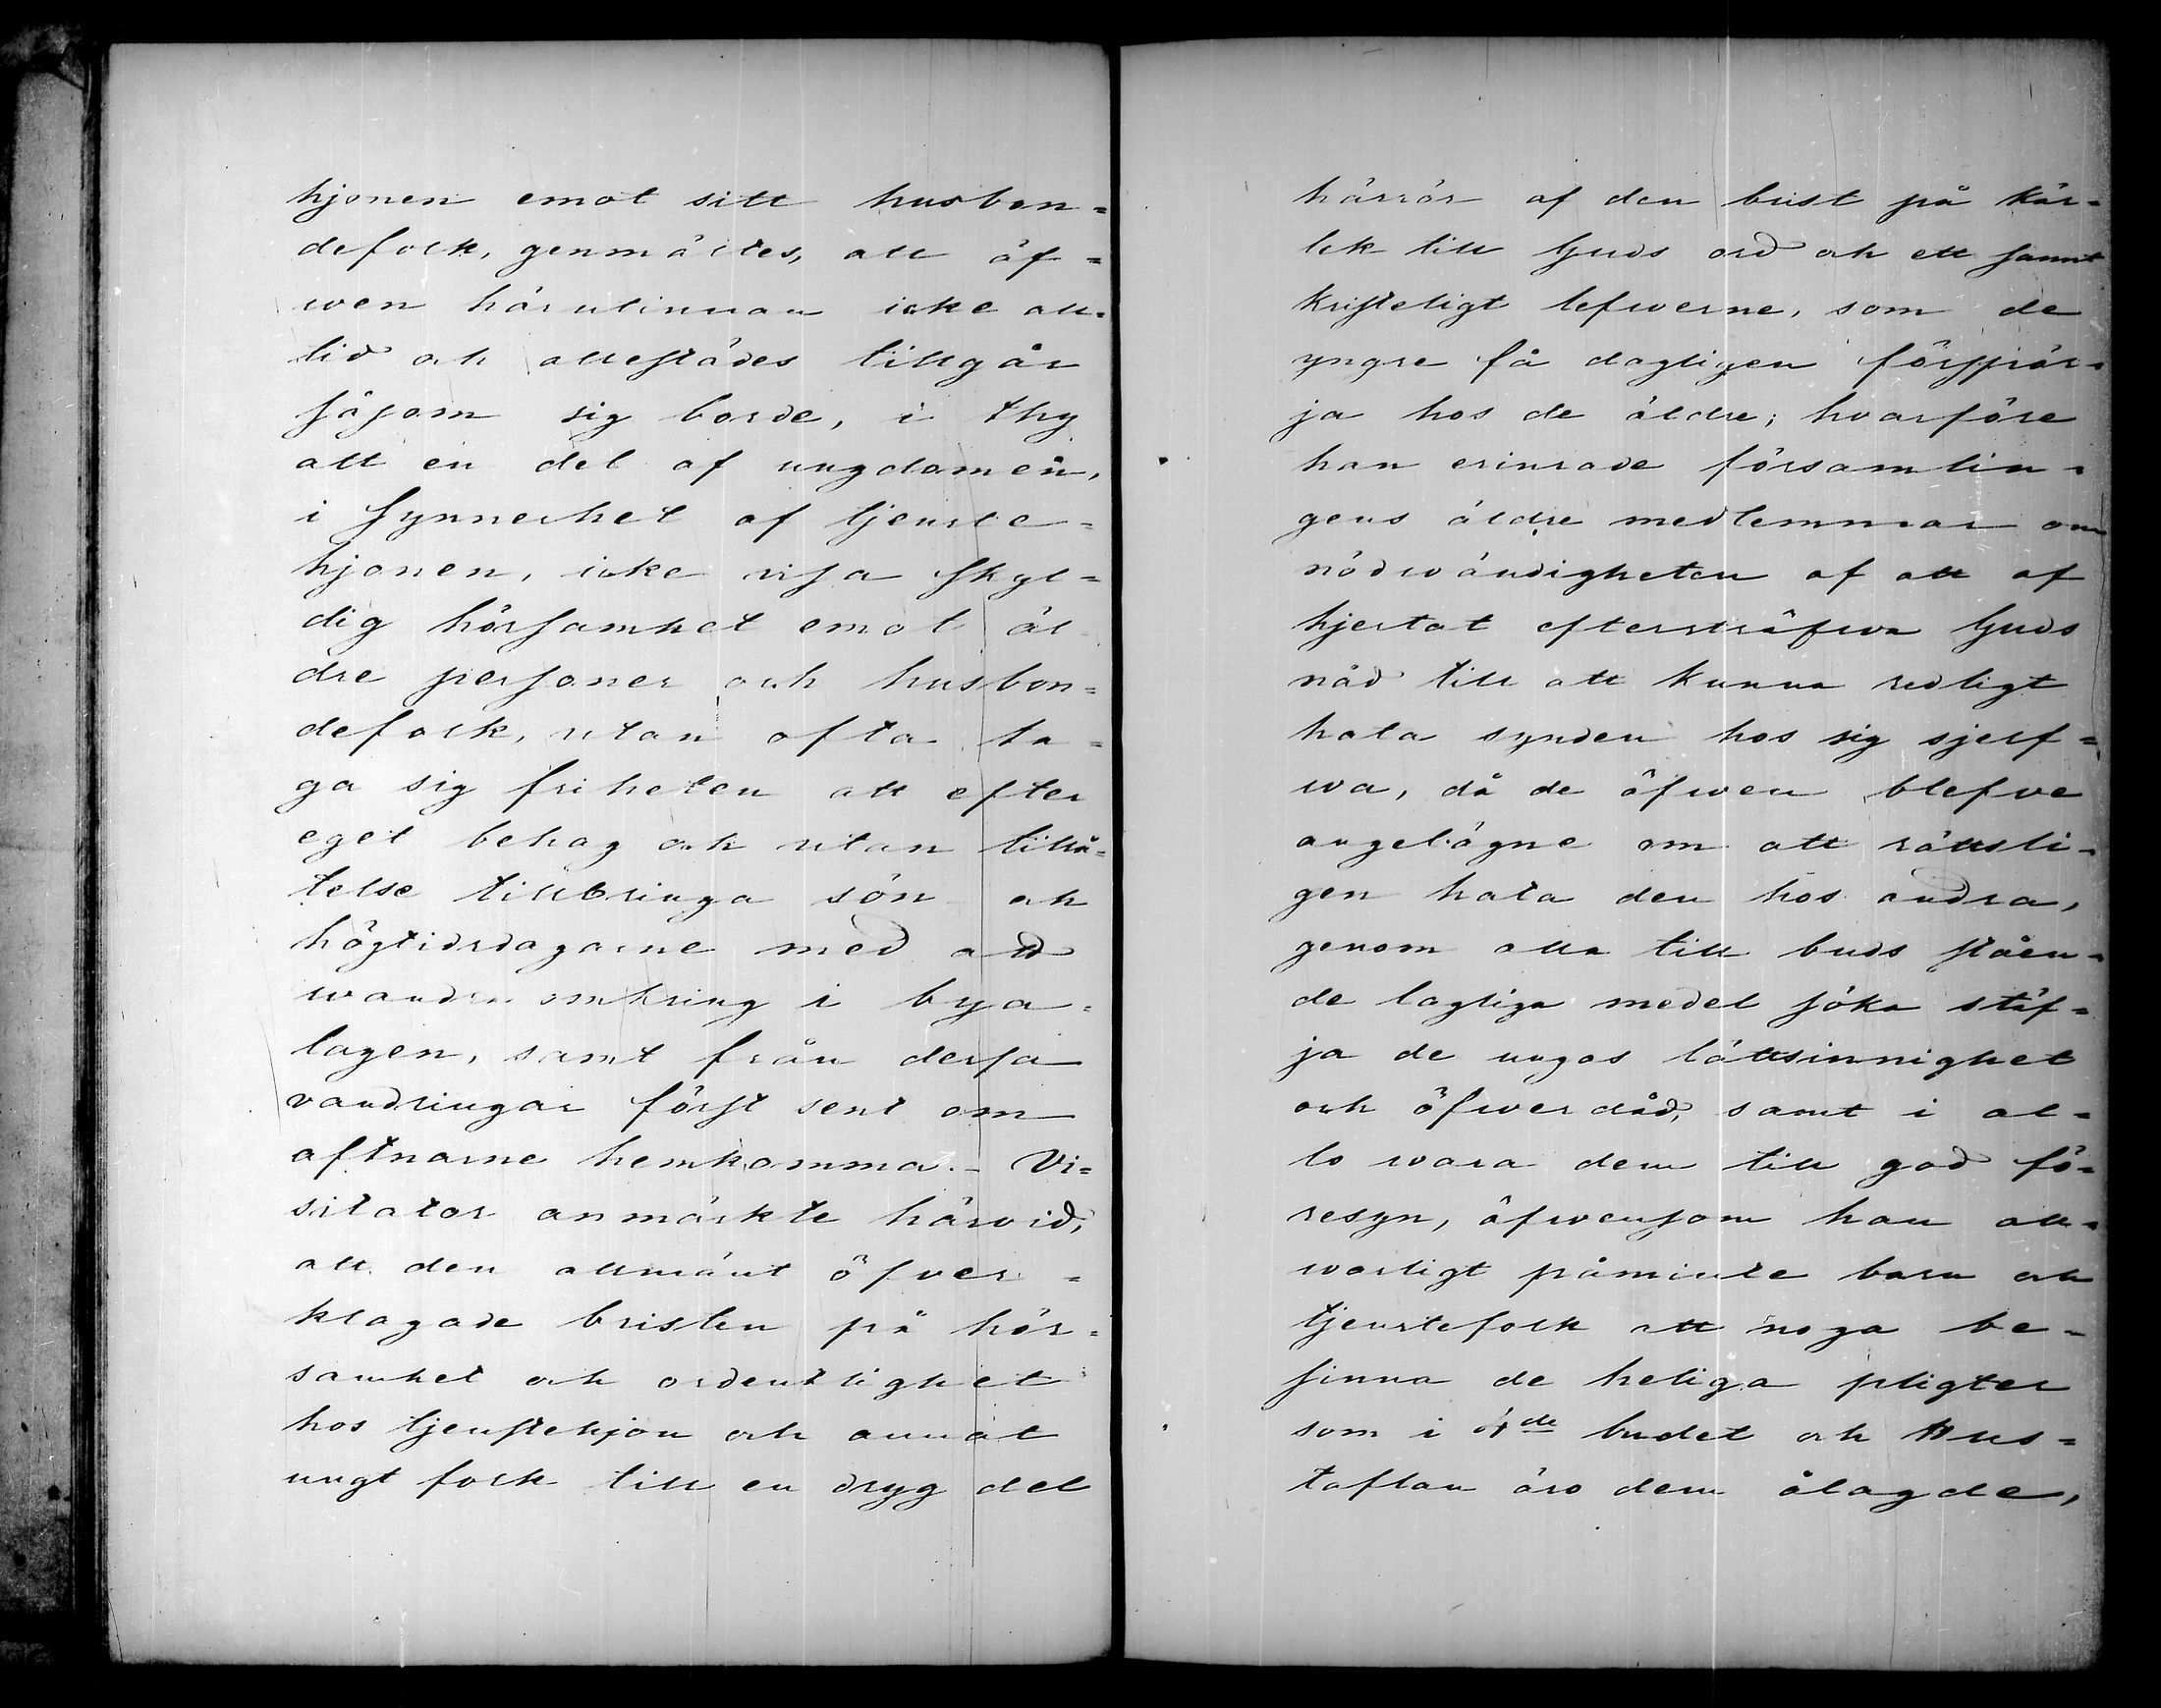 hjonen emot sitt husbon=
defolk, genmältes, att äf=
wen härutinnan icke all=
tid och allestädes tillgår
såsom sig borde, i thy
att en del af ungdomen,
i synnerhet af tjenste=
hjonen, icke visa skyl=
dig hörsamhet emot äl
dre personer och husbon=
defolk, utan ofta ta=
ga sig friheten att efter
eget behag och utan tillå=
telse tillbringa sön och
högtidsdagarne med att
wandra omkring i bya=
lagen, samt från dessa
vandringar först sent om
aftnarne hemkomma. – Vi=
sitator anmärkte härvid,
att den allmänt öfver=
klagade bristen på hör=
samhet och ordentlighet
hos tjenstehjon och annat
ungt folk till en dryg del
härrör af den brist på kär=
lek till Guds ord och ett sannt
kristeligt lefwerne, som de
yngre få dagligen försspör=
ja hos de äldre; hvarföre
han erinrade församlin=
gens äldre medlemmar om
nödwändigheten af att af
hjertat eftersträfwa Guds
nåd till att kunna redligt
hata synden hos sig sjelf=
wa, då de äfwen blefve
angelägne om att rättsli=
gen hata den hos andra,
genom alla till buds ståen=
de lagliga medel söka stäf=
ja de ungas lättsinnighet
och öfwerdåd, samt i al=
lo wara dem till god fö=
resyn, äfwensom han all=
warligt påminte barn och
tjenstefolk att noga be=
sinna de heliga pligter
som i 4de budet och Hus=
taflan äro dem ålagde,